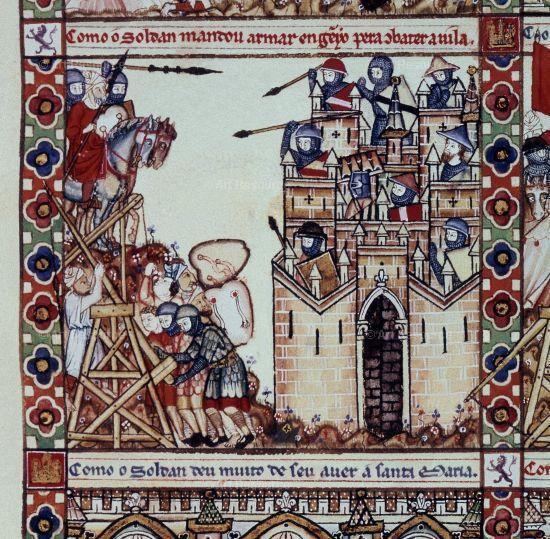 Como o Soldan mandou armar engẽyo pera cõbater a vila.
Como o Soldan deu muito de seu aver a santa Maria.